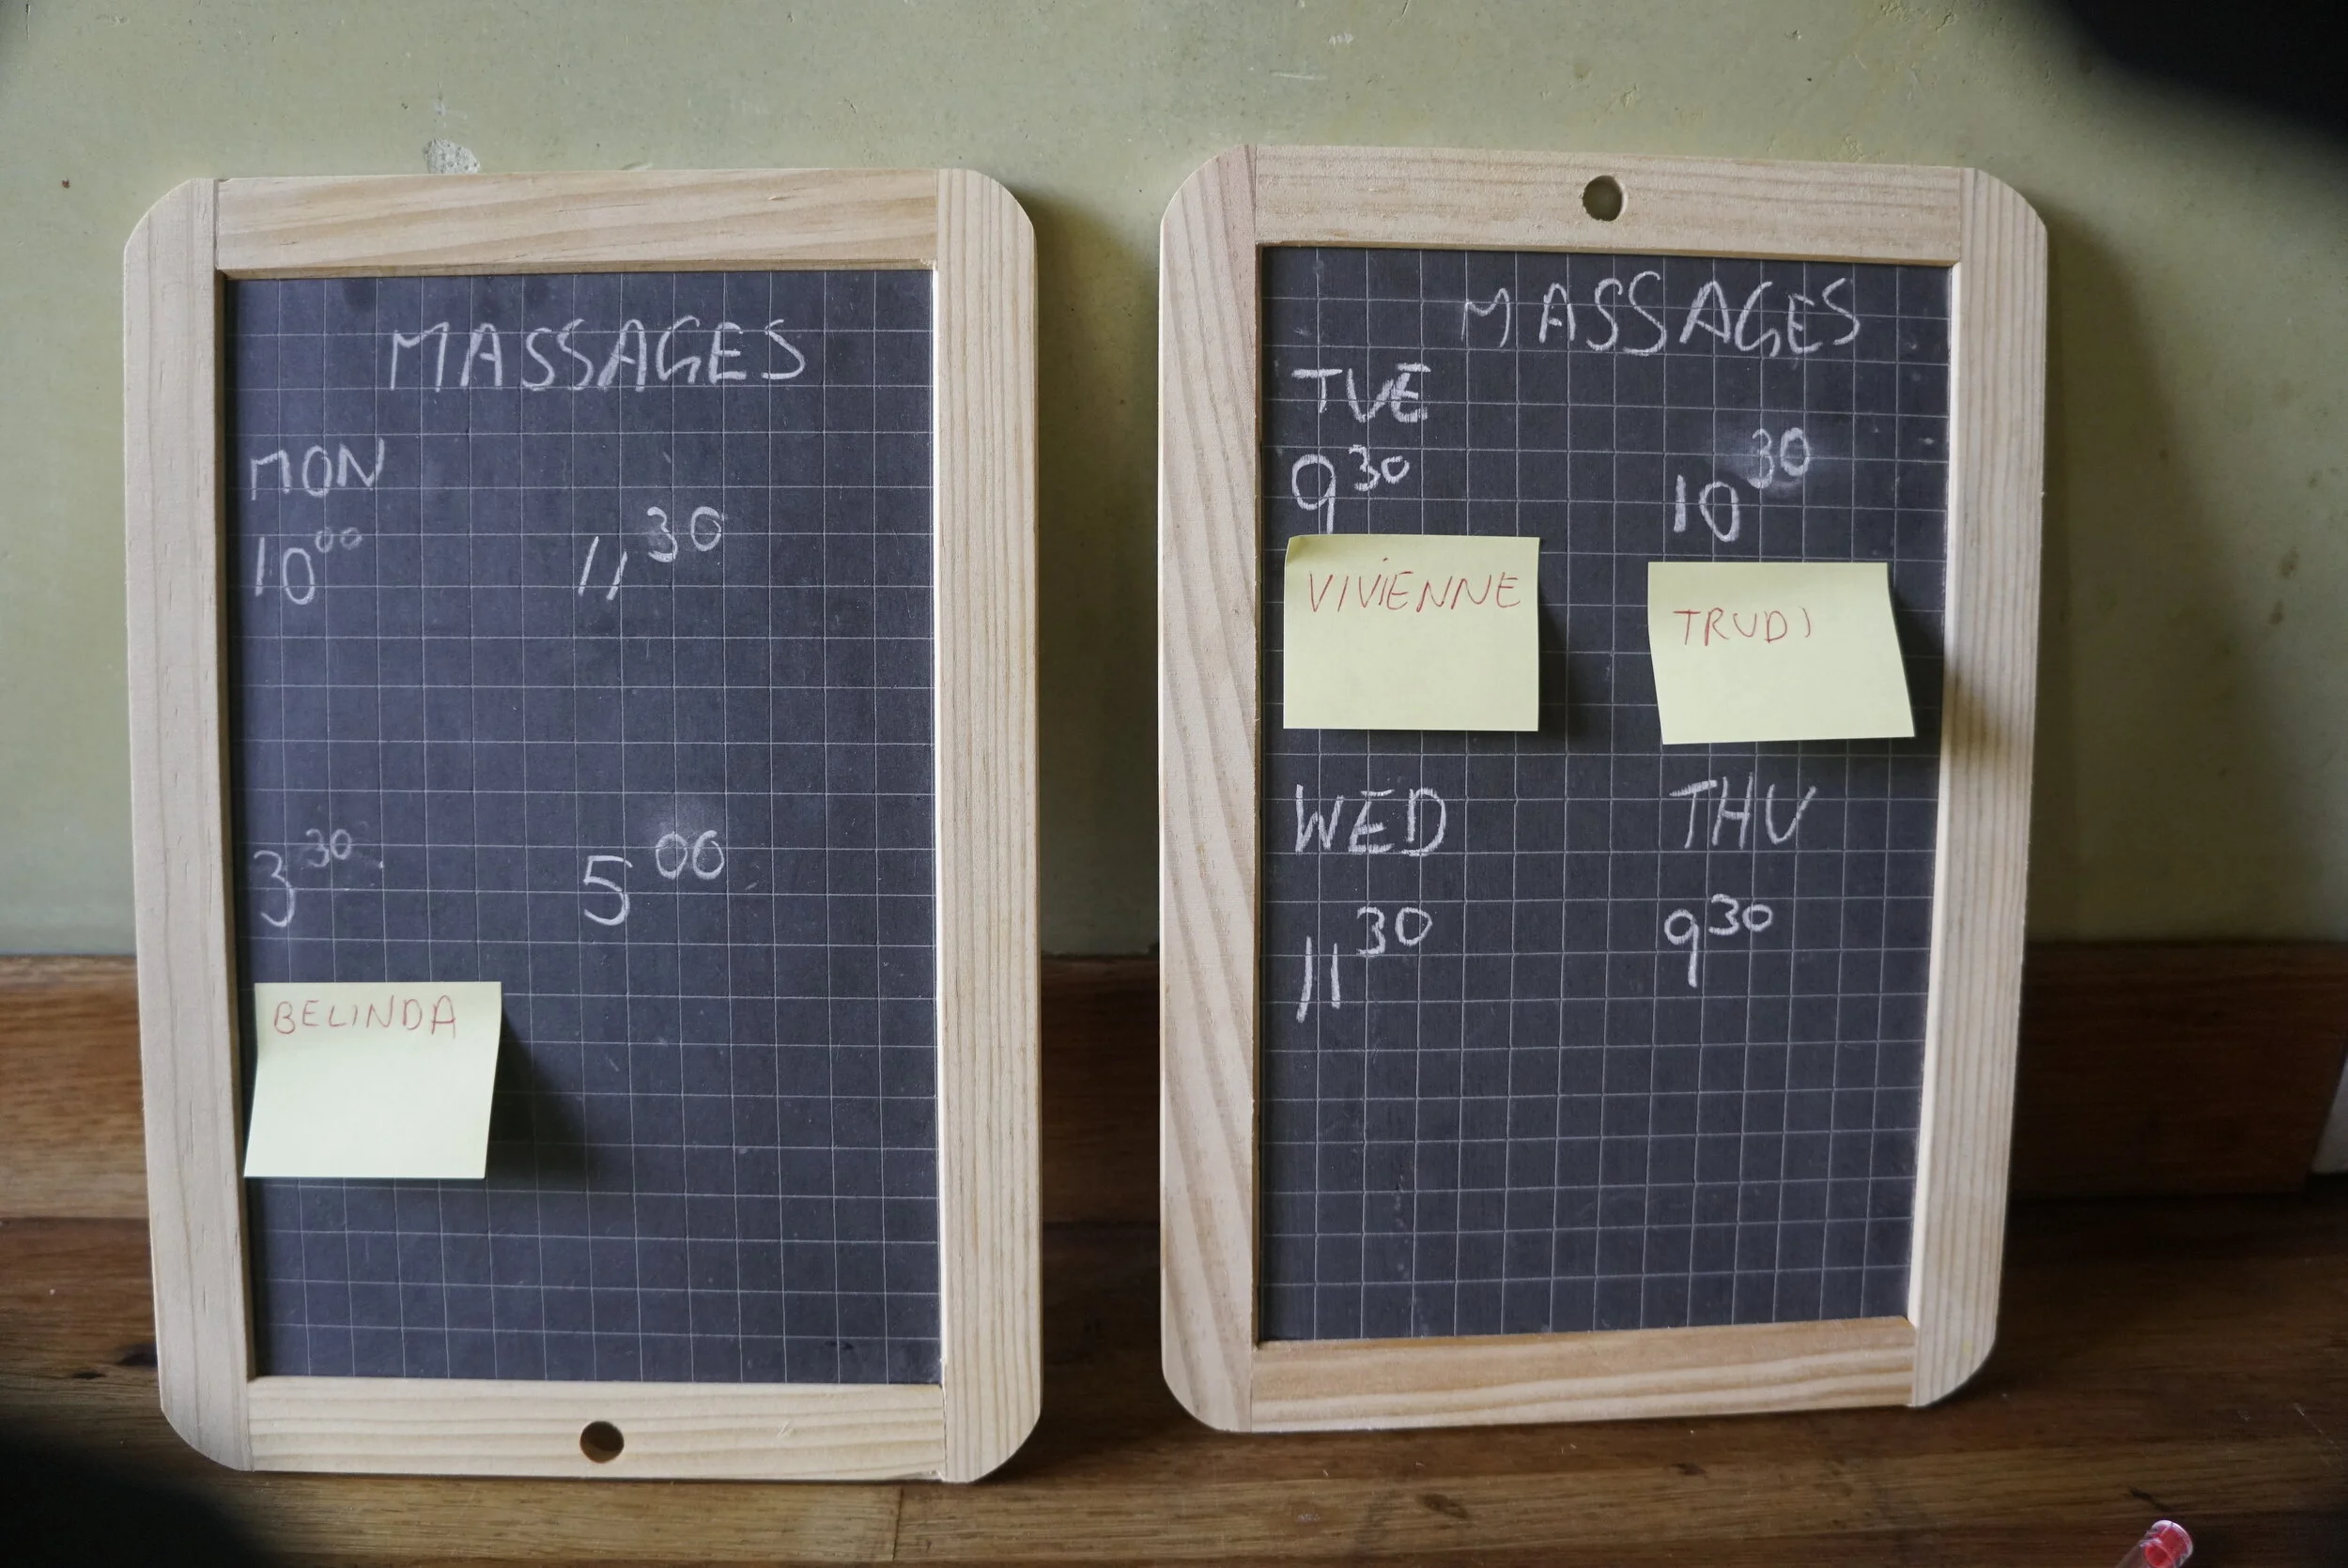 MASSAGES
MON
10 00 11 30
3 30 5 00
BELINDA
MASSAGES
TUE
9 30 10 30
VIVIENNE TRUDI
WED THU
11 30 9 30